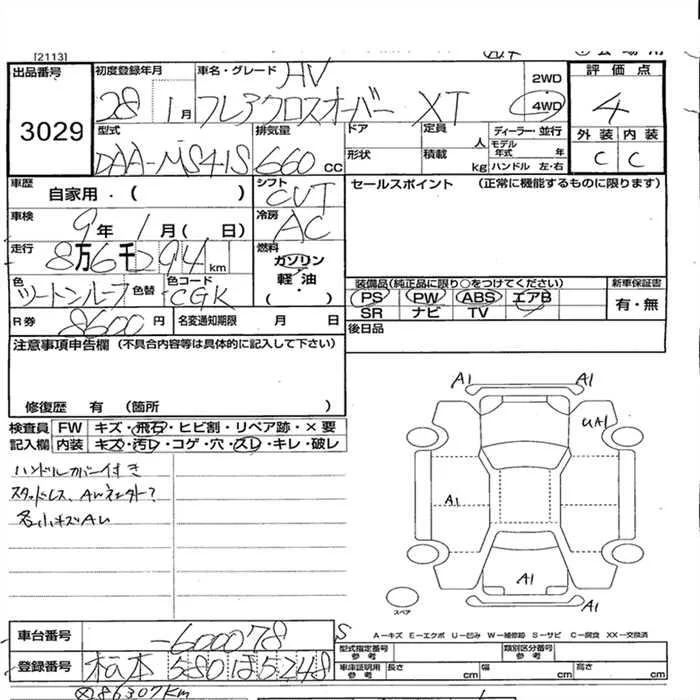 [2113]
出品番号
3029
初度登録年月
28 1月
車名・グレード
HV
フレアクロスオーバー XT
2WD
4WD
評価点
4
外装 内装
C C
型式
DAA-MS41S
排気量
660 CC
ドア
定員
人
形状
積載
kg
ディーラー・並行
モデル年式 年
ハンドル 左・右
車歴
自家用・( )
シフト
CVT
セールスポイント (正常に機能するものに限ります)
車検
9年1月( 日)
冷房
AC
走行
8万6千294km
燃料
ガソリン
軽油
( )
色
ツートンルーフ
色替
色コード
CGK
装備品(純正品に限り○をつけてください)
PS PW ABS エアB
SR ナビ TV
新車保証書
有・無
R券
8600円
名変通知期限 月 日
後日品
注意事項申告欄 (不具合内容等は具体的に記入して下さい)
修復歴 有 (箇所 )
検査員記入欄
FW キズ・飛石・ヒビ割・リペア跡・×要
内装 キズ・汚レ・コゲ・穴・スレ・キレ・破レ
ハンドルカバー付き
各小キズAい
A1 A1
UA1
A1
A1
A1
スペア
A-キズ E-エクボ U-凹み W-補修跡 S-サビ C-腐食 XX-交換済
車台番号
-600078
S
登録番号
580 ほ 5248
型式指定番号 参考
類別区分番号 参考
車庫証明用 参考
長さ cm
幅 cm
高さ cm
86307km